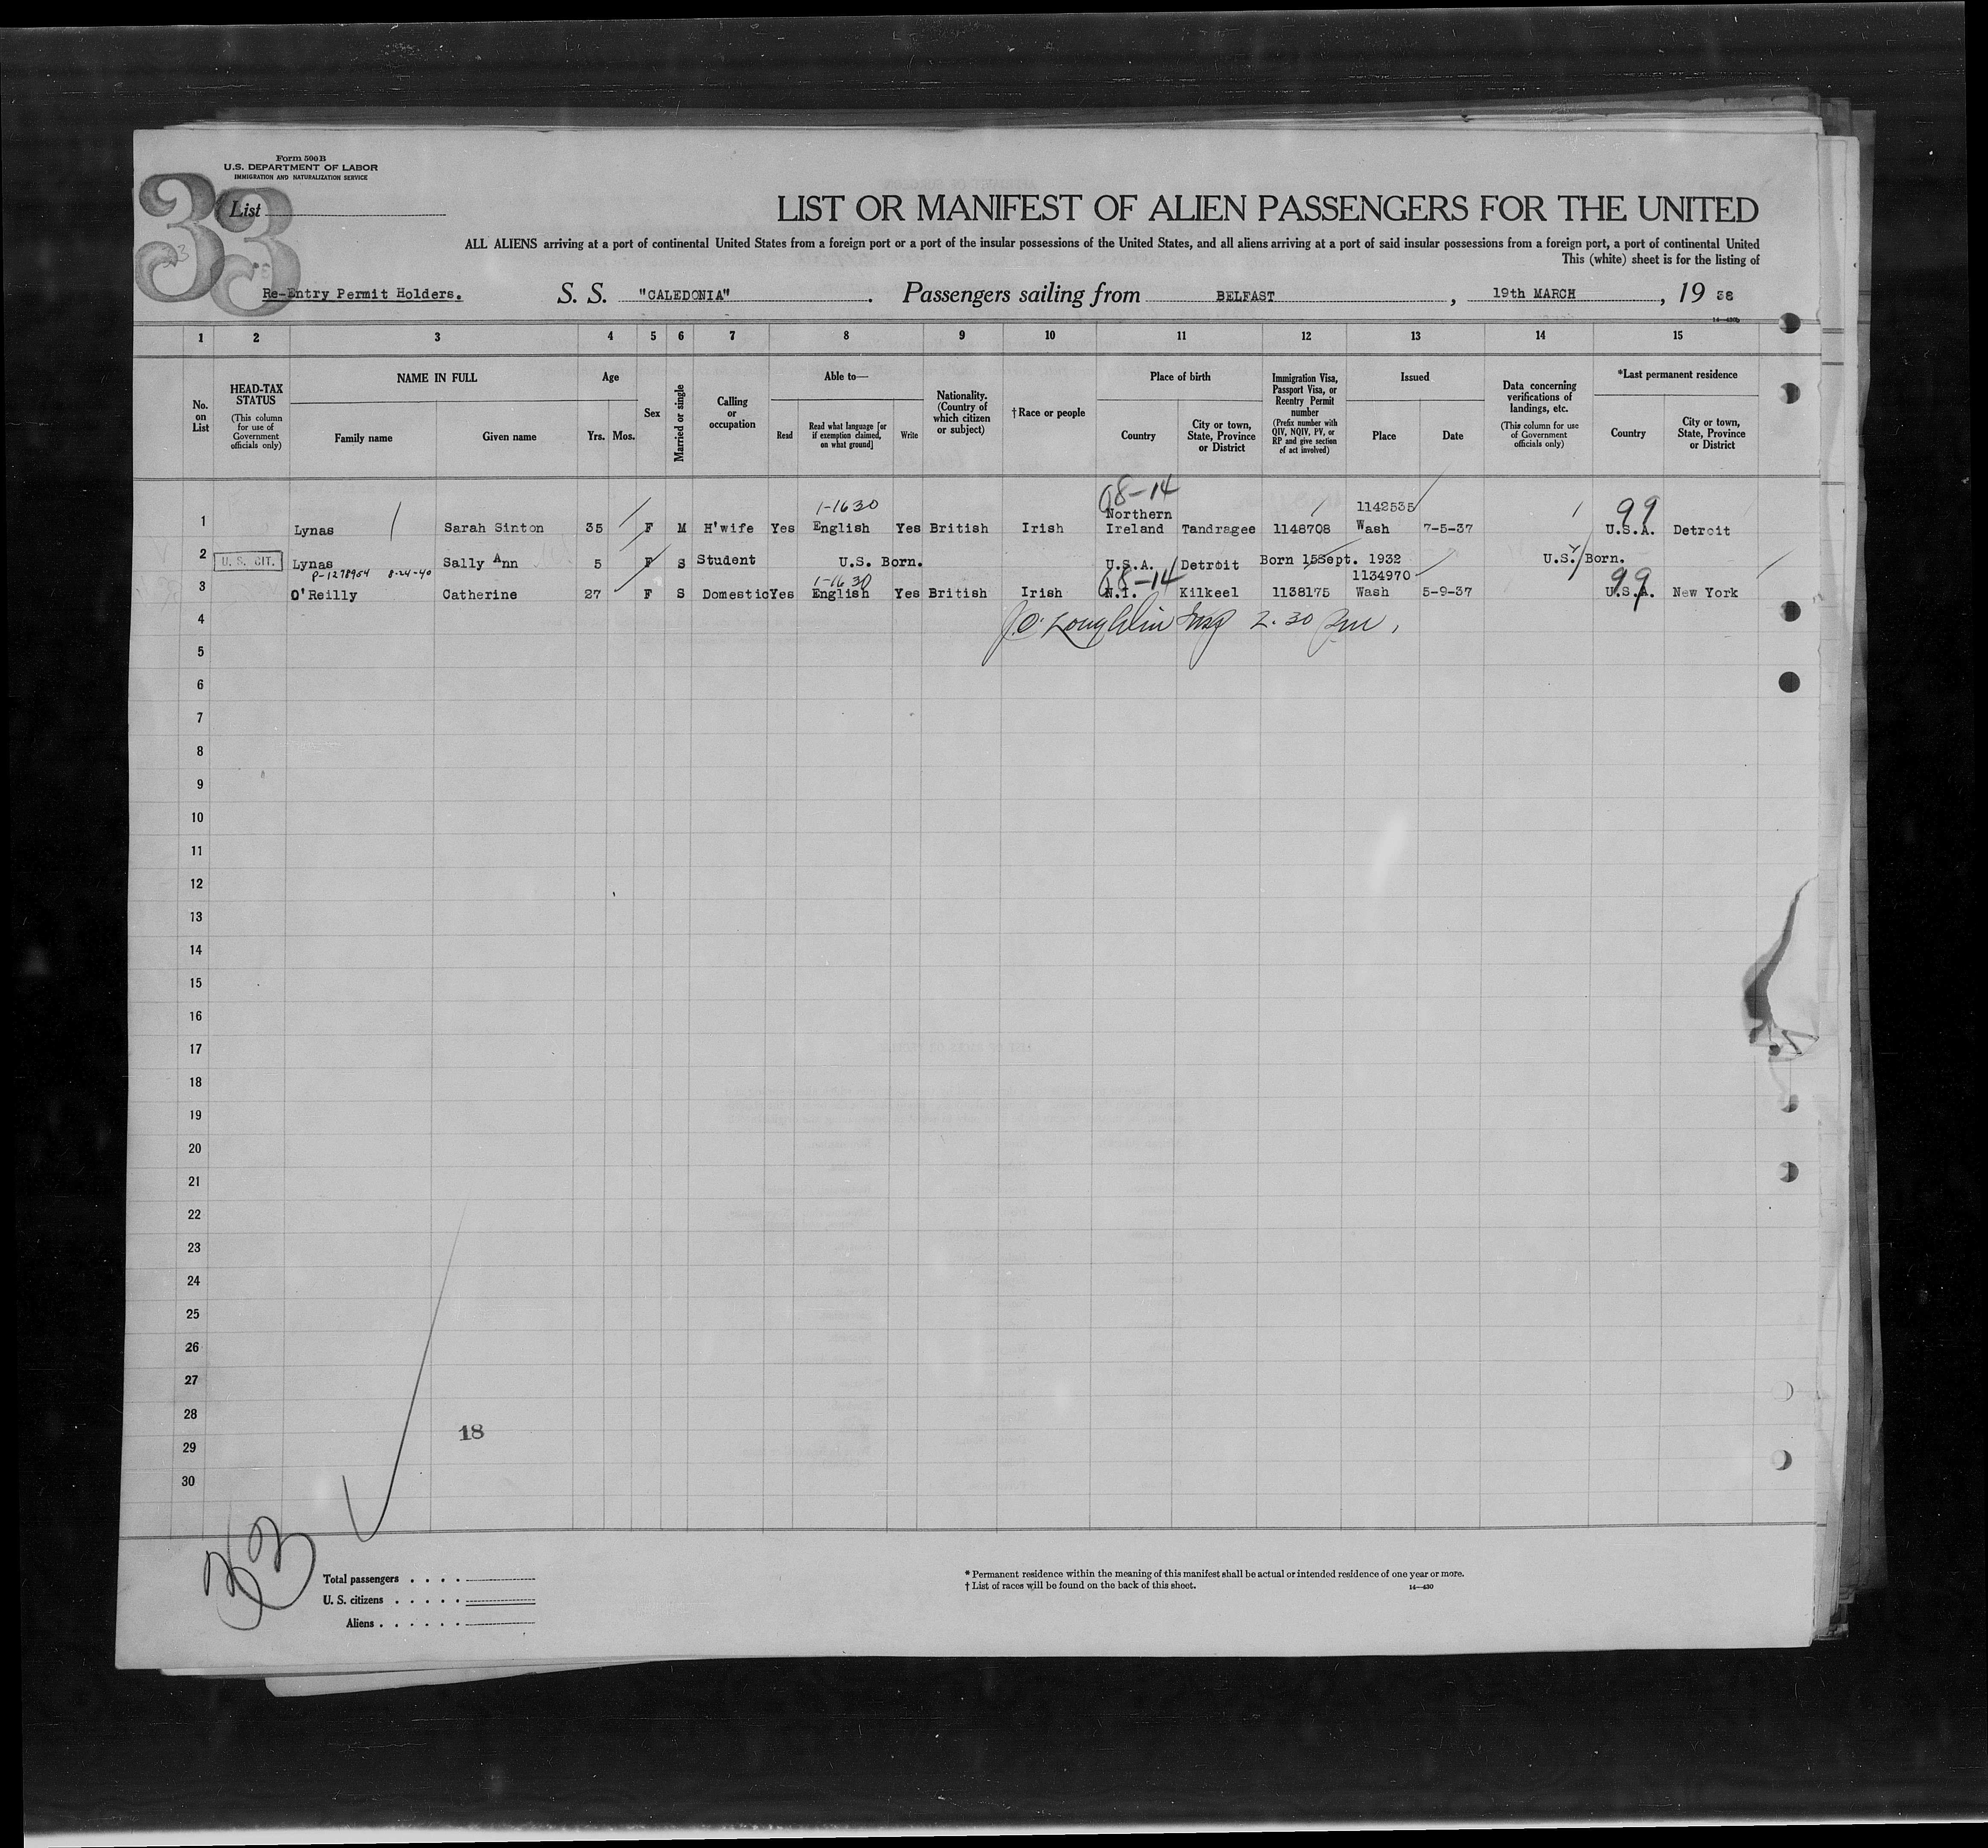 Form 500B
U.S. DEPARTMENT OF LABOR
IMMIGRATION AND NATURALIZATION SERVICE
33
List
LIST OR MANIFEST OF ALIEN PASSENGERS FOR THE UNITED
ALL ALIENS arriving at a port of continental United States from a foreign port or a port of the insular possessions of the United States, and all aliens arriving at a port of said insular possessions from a foreign port, a port of continental United
This (white) sheet is for the listing of
Re-Entry Permit Holders. S. S. "CALEDONIA". Passengers sailing from BELFAST, 19th MARCH, 19 38
1 2 3 4 5 6 7 8 9 10 11 12 13 14 15
No. on List
HEAD-TAX STATUS (This column for use of Government officials only)
NAME IN FULL
Family name Given name
Age
Yrs. Mos.
Sex
Married or single
Calling or occupation
Able to—
Read
Read what language [or if exemption claimed, on what ground]
Write
Nationality. (Country of which citizen or subject)
†Race or people
Place of birth
Country
City or town, State, Province or District
Immigration Visa, Passport Visa, or Reentry Permit number (Prefix number with QIV, NQIV, PV, or RP and give section of act involved)
Issued
Place Date
Data concerning verifications of landings, etc. (This column for use of Government officials only)
*Last permanent residence
Country
City or town, State, Province or District
1-1630 08-14 1142535 99
1 Lynas Sarah Sinton 35 F M H'wife Yes English Yes British Irish Northern Ireland Tandragee 1148708 Wash 7-5-37 U.S.A. Detroit
2 U. S. CIT. Lynas Sally Ann 5 F S Student U.S. Born. U.S.A. Detroit Born 15Sept. 1932 U.S. Born.
P-1278954 8-24-40 1-1630 08-14 1134970 99
3 O'Reilly Catherine 27 F S Domestic Yes English Yes British Irish N.I. Kilkeel 1138175 Wash 5-9-37 U.S.A. New York
4 J.O'Loughlin Insp 2.30 Pm,
5
6
7
8
9
10
11
12
13
14
15
16
17
18
19
20
21
22
23
24
25
26
27
28
18
29
30
33
Total passengers
U. S. citizens
Aliens
* Permanent residence within the meaning of this manifest shall be actual or intended residence of one year or more.
† List of races will be found on the back of this sheet. 14—430